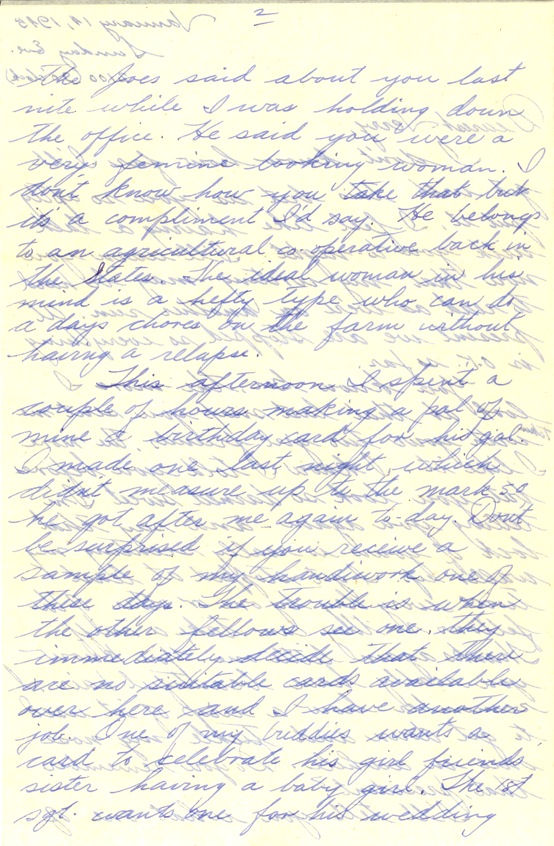 2
The Joes said about you last
nite while I was holding down
the office. He said you were a
very femine looking woman. I
dont know how you take that but
its a compliment I'd say. He belongs
to an agricultural co-operative back in
the States. The ideal woman in his
mind is a hefty type who can do
a days chores on the farm without
having a relapse.
This afternoon I spent a
couple of hours making a pal of
mine a birthday card for his gal.
I made one last night which
didnt measure up to the mark so
he got after me again to day. Dont
be surprised if you recieve a
sample of my handiwork one of
these days. The trouble is when
the other fellows see one, they
immediately decide that there
are no suitable cards available
over here and I have another
job. One of my buddies wants a
card to celebrate his girl friends
sister having a baby girl. The 1st
sgt. wants one for his wedding